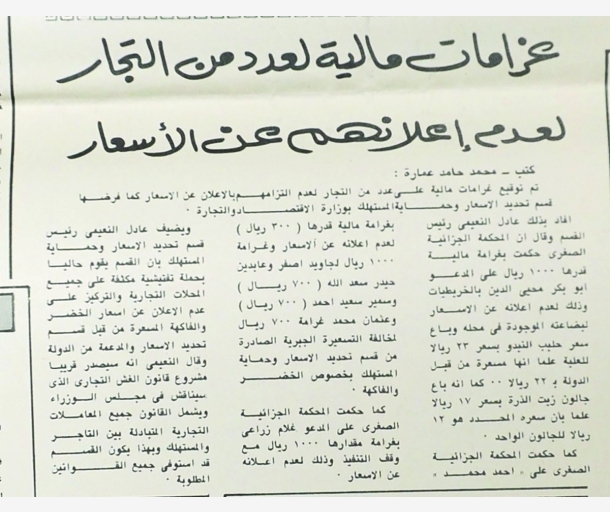 غرامات مالية لعدد من التجار
لعدم إعلانهم عن الأسعار
كتب ـ محمد حامد عمارة :
تم توقيع غرامات مالية على عدد من التجار لعدم التزامهم بالاعلان عن الاسعار كما فرضها
قسم تحديد الاسعار وحماية المستهلك بوزارة الاقتصاد والتجارة ٠
افاد بذلك عادل النعيمى رئيس
القسم وقال ان المحكمة الجزائية
الصغرى حكمت بغرامة مالية
قدرها ١٠٠٠ ريال على المدعو
ابو بكر محيى الدين بالخريطيات
وذلك لعدم اعلانه عن الاسعار
لبضاعته الموجودة في محله وباع
سعر حليب النيدو بسعر ٢٣ ريالا
للعلبة علما انها مسعرة من قبل
الدولة بـ ٢٢ ريالا ٠٠ كما انه باع
جالون زيت الذرة بسعر ١٧ ريالا
علما بان سعره المحدد هو ١٢
ريالا للجالون الواحد ٠
كما حكمت المحكمة الجزائية
الصغرى على « احمد محمد »
بغرامة مالية قدرها ( ٣٠٠ ريال )
لعدم اعلانه عن الاسعار وغرامة
١٠٠٠ ريال لجاويد اصغر وعابدين
حيدر سعد الله ( ٧٠٠ ريال )
وسمير سعيد احمد ( ٧٠٠ ريال )
وعثمان محمد غرامة ٧٠٠ ريال
لمخالفة التسعيرة الجبرية الصادرة
من قسم تحديد الاسعار وحماية
المستهلك بخصوص الخضر
والفاكهة ٠
كما حكمت المحكمة الجزائية
الصغرى على المدعو غلام زراعى
بغرامة مقدارها ١٠٠٠ ريال مع
وقف التنفيذ وذلك لعدم اعلانه
عن الاسعار ٠
ويضيف عادل النعيمى رئيس
قسم تحديد الاسعار وحماية
المستهلك بان القسم يقوم حاليا
بحملة تفتيشية مكثفة على جميع
المحلات التجارية والتركيز على
عدم الاعلان عن اسعار الخضر
والفاكهة المسعرة من قبل قسم
تحديد الاسعار والمدعمة من الدولة
وقال النعيمى انه سيصدر قريبا
مشروع قانون الغش التجارى الذى
سيناقش في مجلس الوزراء
ويشمل القانون جميع المعاملات
التجارية المتبادلة بين التاجر
والمستهلك وبهذا يكون القسم
قد استوفى جميع القوانين
المطلوبة ٠